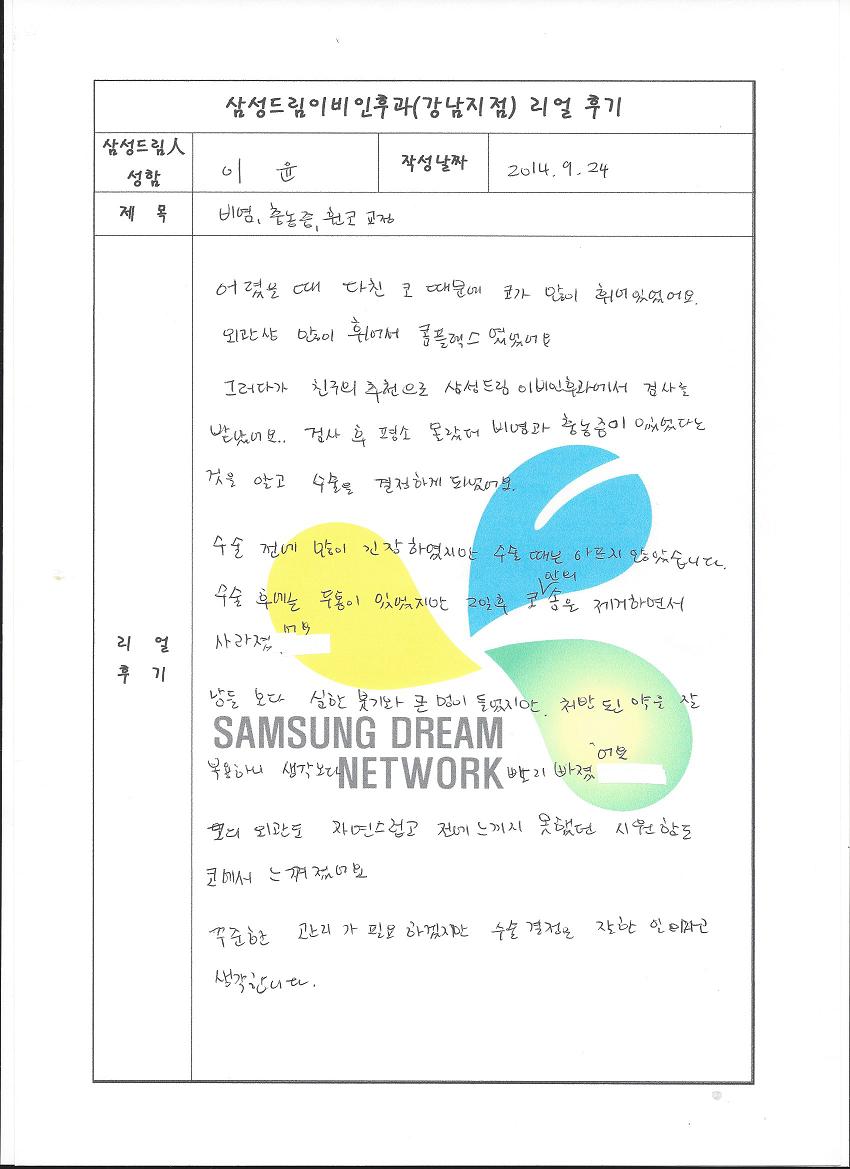 삼성드림이비인후과(강남지점) 리얼 후기
삼성드림人 성함
이 윤
작성날짜
2014. 9. 24
제 목
비염, 축농증, 휜코 교정
리 얼 후 기
어렸을 때 다친 코 때문에 코가 많이 휘어있었어요.
외관상 많이 휘어서 콤플렉스 였었어요
그러다가 친구의 추천으로 삼성드림 이비인후과에서 검사를
받았어요.. 검사 후 평소 몰랐던 비염과 축농증이 있었다는
것을 알고 수술을 결정하게 되었어요.
수술 전에 많이 긴장하였지만 수술 때는 아프지 않았습니다.
수술 후에는 두통이 있었지만 2일후 코 안의 솜을 제거하면서
사라졌어요.
남들 보다 심한 붓기와 큰 멍이 들었지만. 처방 된 약을 잘
SAMSUNG DREAM
복용하니 생각보다 빨리 빠졌어요
NETWORK
코의 외관도 자연스럽고 전에 느끼지 못했던 시원함도
코에서 느껴졌어요
꾸준한 관리가 필요 하겠지만 수술 결정은 잘한 일이라고
생각합니다.